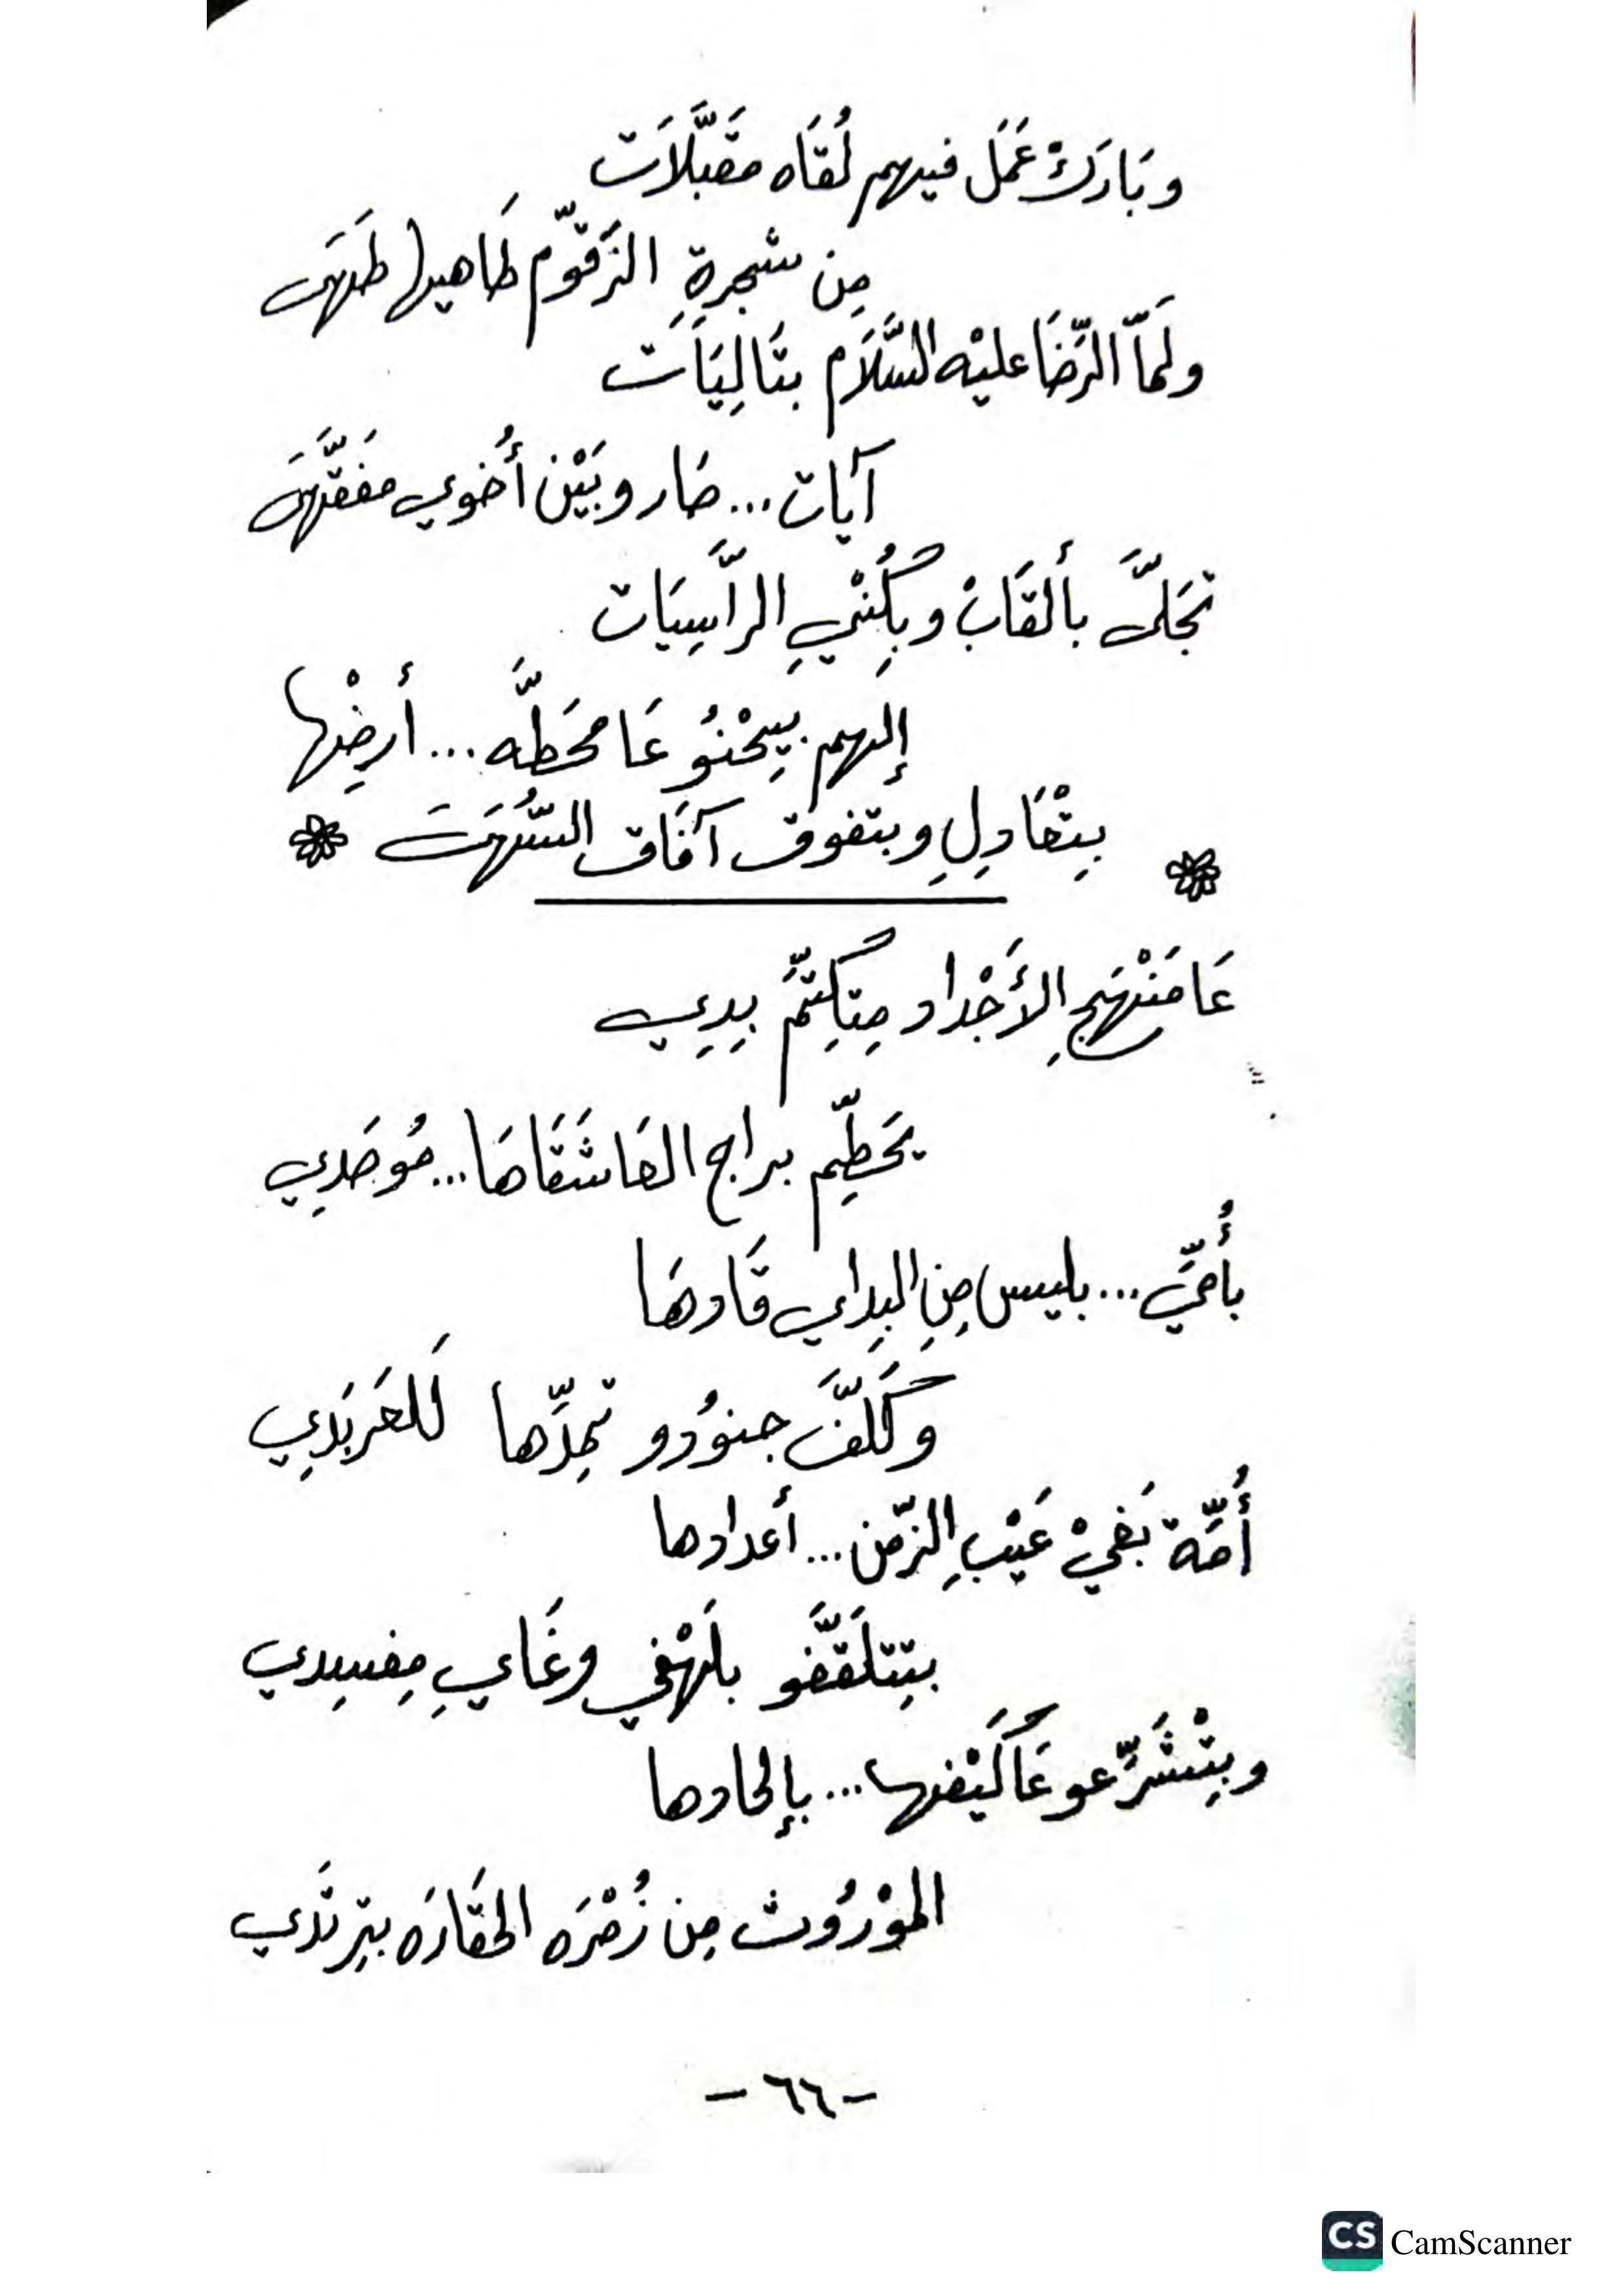 وبَارَكْ عَمَل فيهم لُقَاه مقَبَّلَات
مِن شجرةِ الزَقّوم طَاهيها طَهَى
ولَمّا الرِّضَا عليْه السَّلَام بتَالِيَات
آيات... صَار وبَيْن أُخوي مفَقَّهَى
تجَلَّى بألقَابْ وبِكُنْيِ الرَّاسِيَات
إلهم بيِحْنُو عَا محَطَّه... أرضِْها
بِتْعَادِلِ وبتفوق آفَاق السُّهَىَ
عَا مَنْهَجِ الأَجْداد مِتكِتَّم بِدِي
يحَطِّم براج العَاشَقَاهَا... مُوصَدِي
بأُمّي... بليس مِنِ البِداي قَادهَا
وكَلَّفَ جنوُدو تمِدّها لَلعَربَدِي
أُمّة بَغيْ عَيْبِ الزّمن... أعدادها
بتِتلَقَّفو بلَهْفِي وغَايِ مِفسِدي
وبِتْشَرّعو عَاكَيْفها... بإلحادها
الموْرُوث مِن زُمْرَه الحقَارَه بتِرتَدي
- ٦٦ -
CS CamScanner